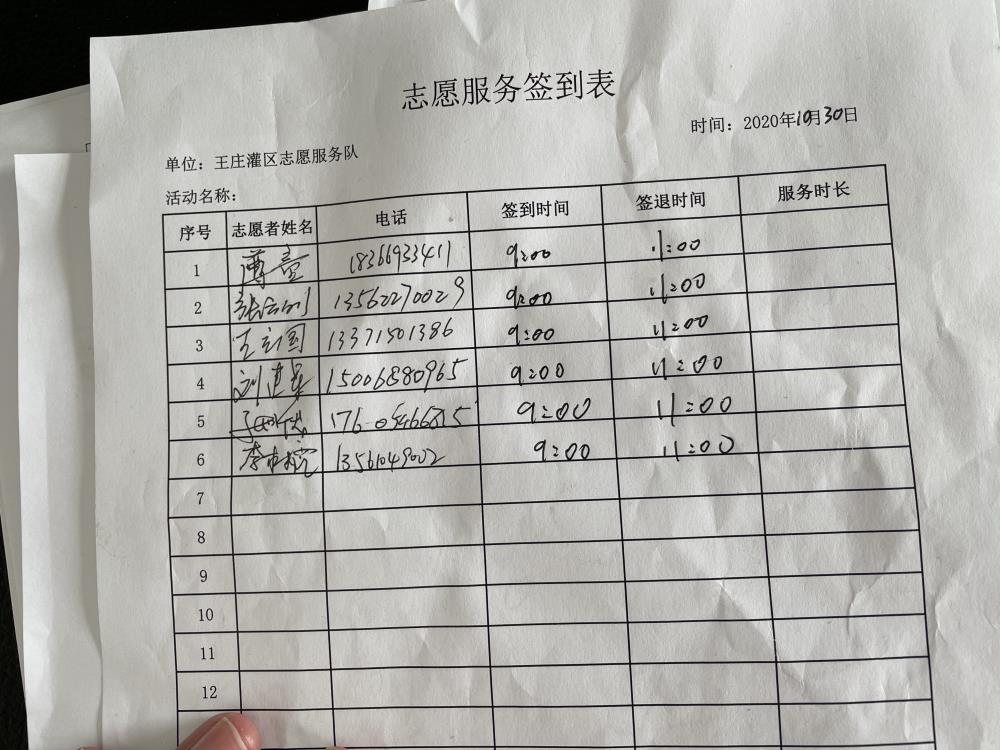 志愿服务签到表
时间：2020年10月30日
单位：王庄灌区志愿服务队
活动名称：
序号 志愿者姓名 电话 签到时间 签退时间 服务时长
1 18366933411 9:00 11:00
2 13562270029 9:00 11:00
3 王立国 13371501386 9:00 11:00
4 15006880965 9:00 11:00
5 9:00 11:00
6 13561049002 9:00 11:00
7
8
9
10
11
12